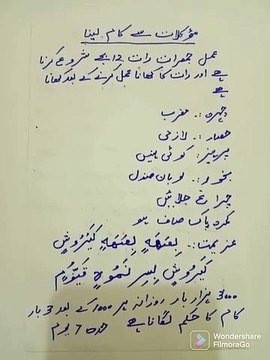 مؤکلات سے کام لینا
عمل جمعرات رات 12 بجے شروع کرنا
ہے اور رات کا کھانا عمل کرنے کے بعد کھانا
ہے
چہرہ :. مغرب
حصار :. لازمی
پرہیز :. کوئی نہیں
بخور :. لوبان صندل
چراغ جلائیں
کمرہ پاک صاف ہو
عزیمت :.
3000 ہزار بار روزانہ ہر 1000 کے بعد 3 بار
کام کا حکم لگانا ہے مدت 7 یوم
Wondershare
FilmoraGo